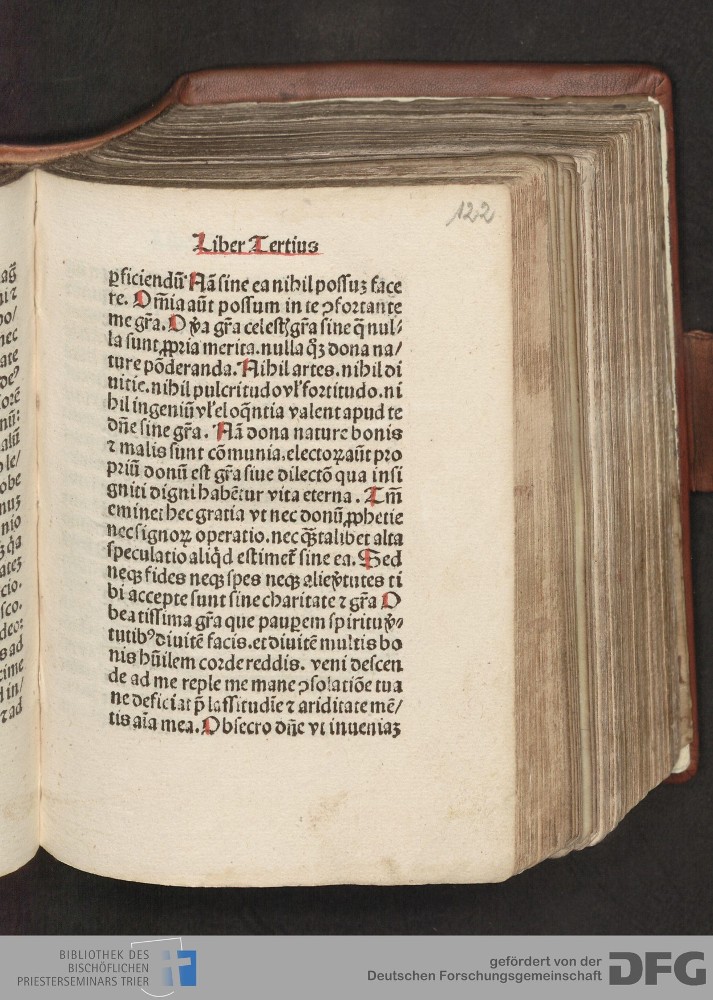 122
Liber Tertius
ꝑficiendū Nā sine ea nihil possuꝫ face
re. Om̄ia aūt possum in te ↄfortante
me gr̄a. O ꝟa gr̄a celestꝭ gr̄a sine q̄ nul⸗
la sunt ꝓpria merita. nulla qꝫ dona na/
ture pōderanda. Nihil artes. nihil di
uitie. nihil pulcritudo vl' fortitudo. ni
hil ingeniū vl' eloq̄ntia valent apud te
dn̄e sine gr̄a. Nā dona nature bonis
⁊ malis sunt cōmunia. electoꝝ aūt pro
priū donū est gr̄a siue dilectō qua insi
gniti digni habētur vita eterna. Tm̄
eminet hec gratia vt nec donū ꝓphetie
nec signoꝝ operatio. nec qͣꝫtalibet alta
speculatio aliqͥd estimet᷑ sine ea. Sed
neqꝫ fides neqꝫ spes neqꝫ alie ꝟtutes ti
bi accepte sunt sine charitate ⁊ gr̄a O
beatissima gr̄a que pauꝑem spiritu ꝟ⸗
tutibꝰ diuitē facis. et diuitē multis bo
nis hūilem corde reddis. veni descen
de ad me reple me mane ↄsolatiōe tua
ne deficiat p̄ lassitudīe ⁊ ariditate mē/
tis aīa mea. Obsecro dn̄e vt inueniaꝫ
BIBLIOTHEK DES
BISCHÖFLICHEN
PRIESTERSEMINARS TRIER
gefördert von der
Deutschen Forschungsgemeinschaft
DFG